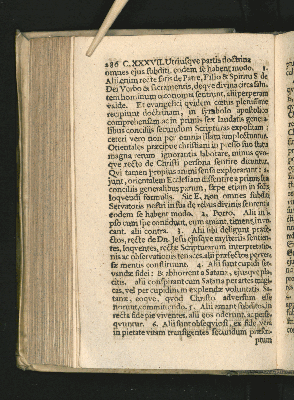 286 C. XXXVII. Utriusque partis doctrina
omnes ejus subditi, eodem se habent modo. 1.
Alii enim recte sciūt de Patre, Filio & Spiritu S. de
Dei Verbo & sacramentis, deque divina circa salu-
tem hominum œconomia sentiunt, alii perperam
valde. Et evangelici quidem cœtus plenissime
recipiunt doctrinam, in symbolo apostolico
comprehensam ac in primis sex laudatis genera-
libus conciliis secundum Scripturas expositam:
ceteri vero non per omnia istam amplectuntur.
Orientales præcipue christiani in presso suo statu
magna rerum ignorantia laborant, minus quo-
que recte de Christi persona sentire dicuntur.
Qui tamen propius animi sensa explorarunt:
ajunt, orientalem Ecclesiam dissentire a primis
conciliis generalibus parum, sæpe etiam in sola
loquendi formula. Sic & non omnes subditi
Servatoris nostri in his de rebus divinis sententia
eodem se habent modo. 2. Porro. Alii in i-
pso cum spe confidunt, eum amant, timent, invo-
cant, alii contra. 3. Alii sibi deligunt præfe-
ctos, recte de Dn. Jesu ejusque mysteriis sentien-
tes, loquentes, rectæ Scripturarum interpretatio-
nis ac observationis tenaces, alii præfectos perver-
sæ mentis constituunt. 4. Alii sunt cupidi
vandæ fidei: & abhorrent a Satana, ejusque pla-
citis, alii conspirant cum Satana per artes magi-
cas, vel per cupidinem explendæ voluntatis Sa-
tanæ, eoque, quod Christo adversum esse
norunt, committendo. 5. Alii amant subditos, in
recta fide pie viventes, alii eos oderunt, ac perse-
quuntur. 6. Alii sunt obsequiosi, ex fide vera
in pietate vitam transigentes secundum præsci-
ptum